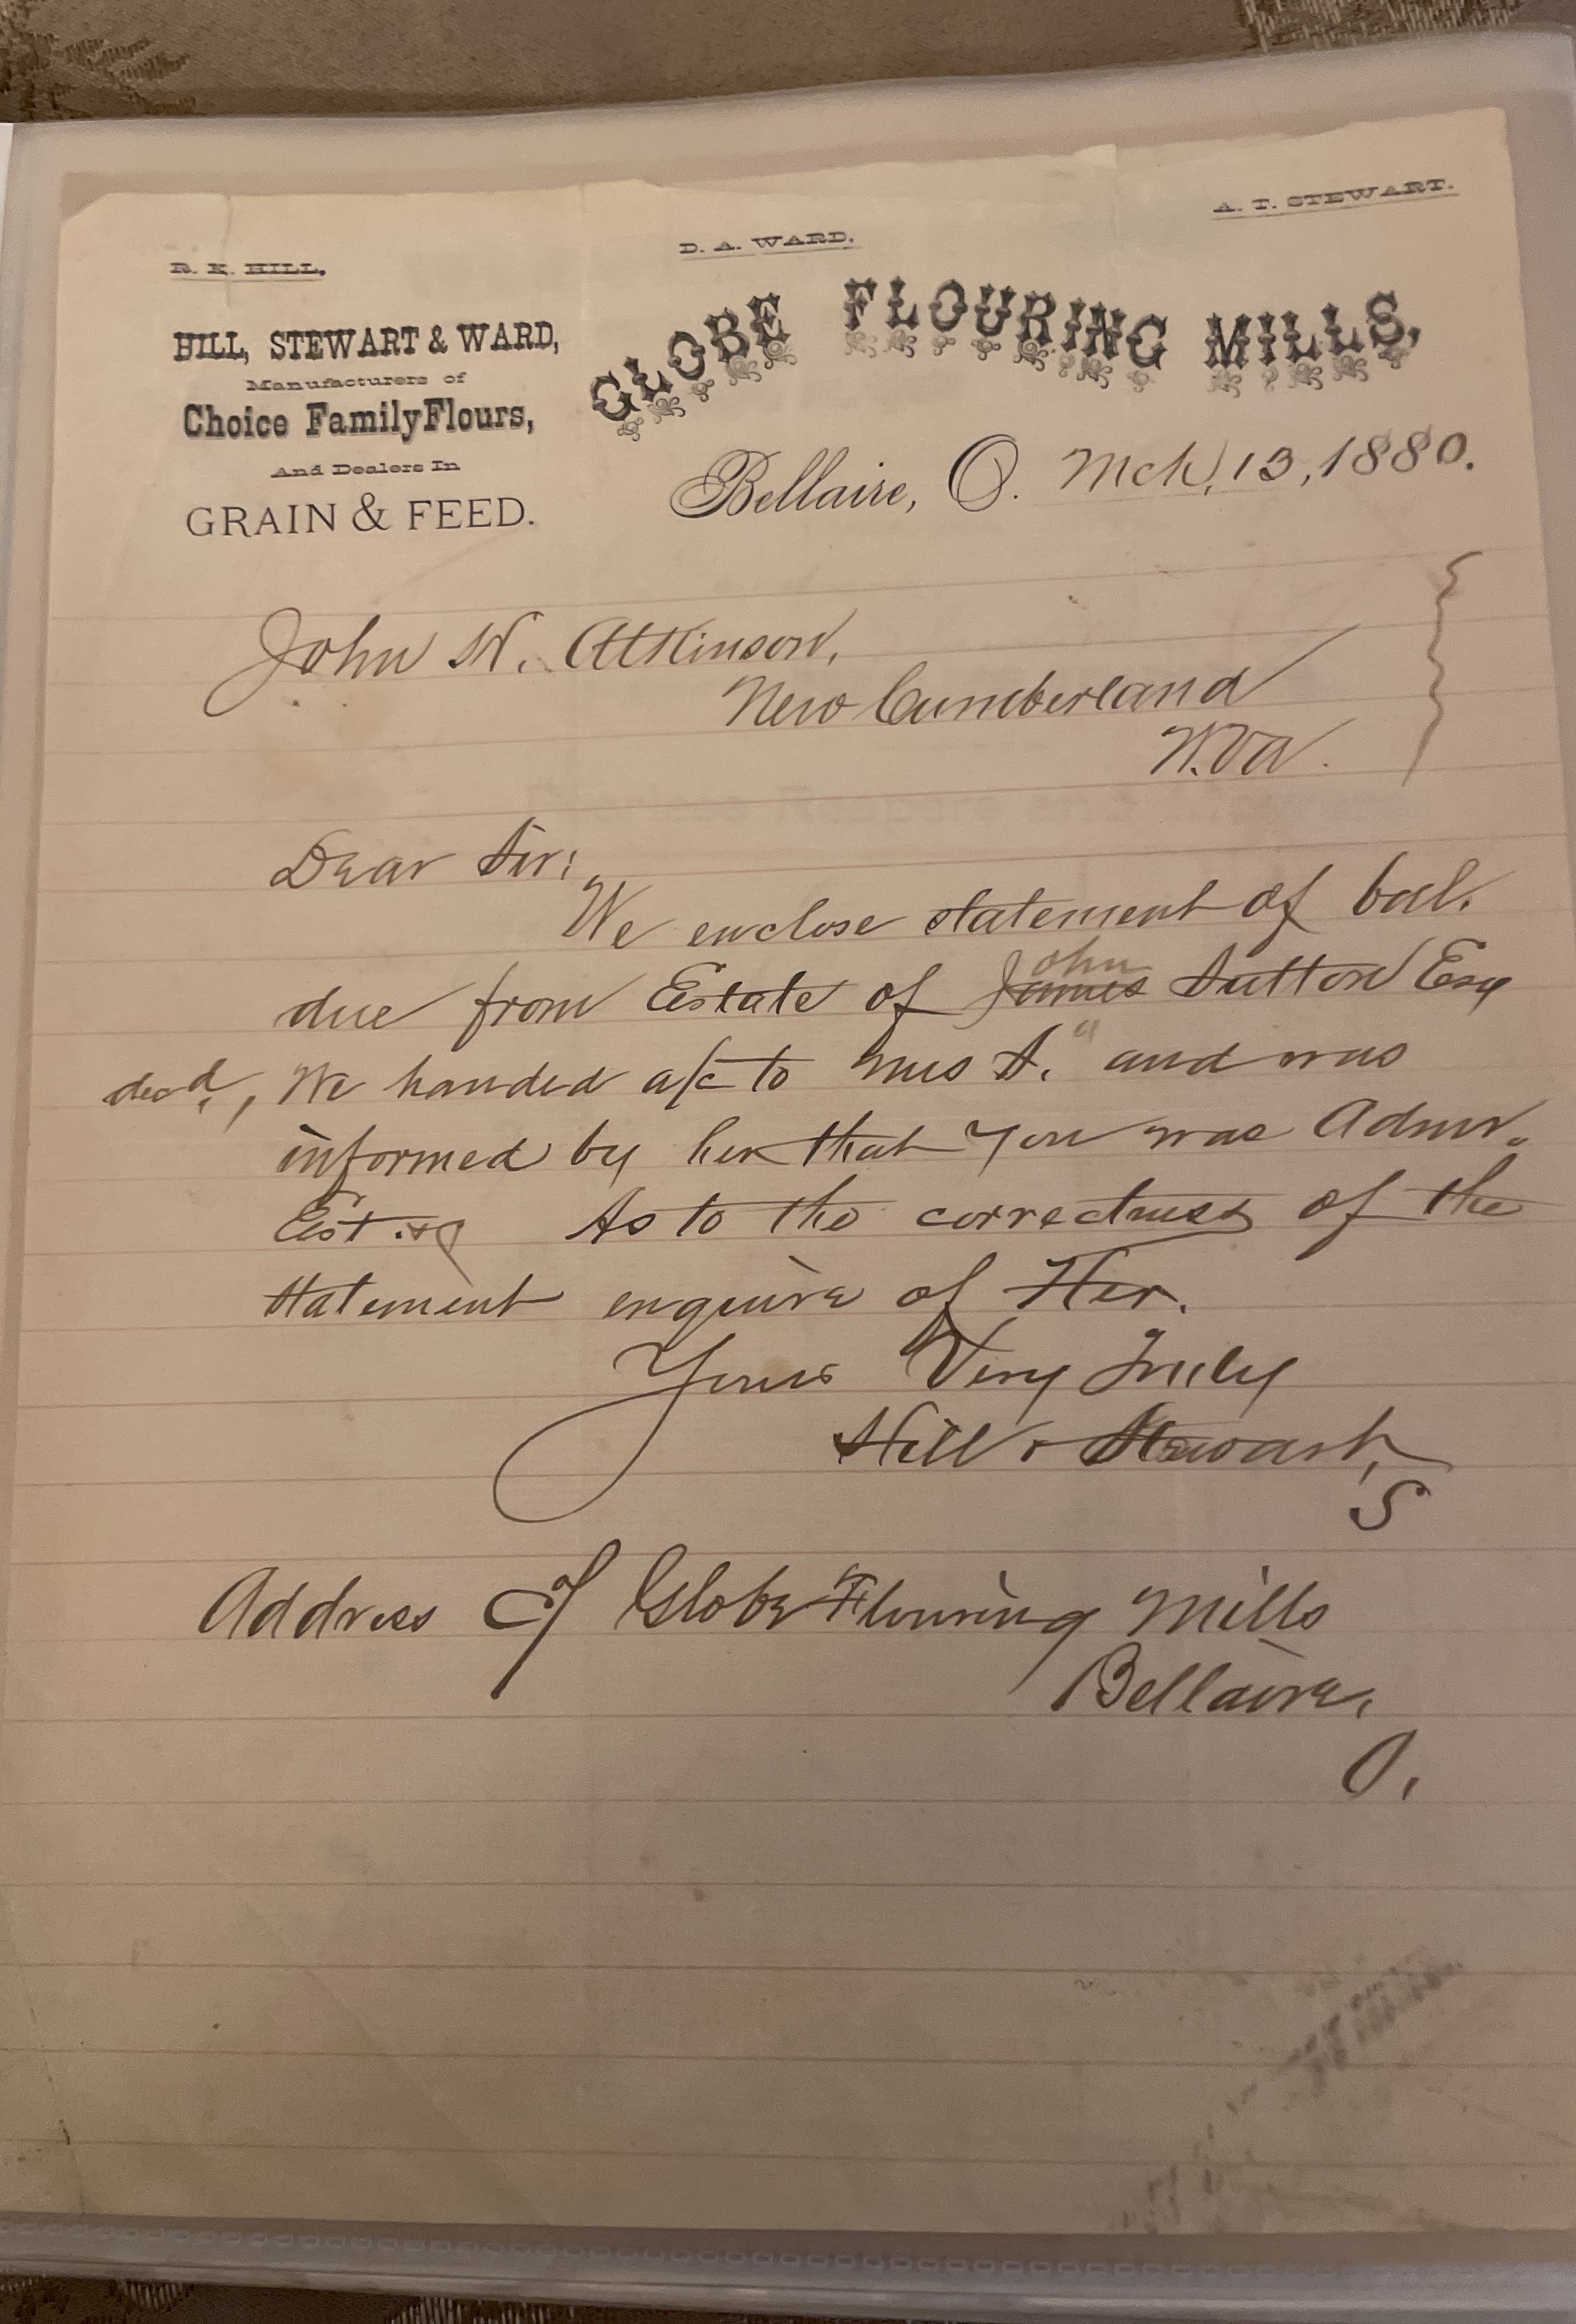 R. K. HILL,
D. A. WARD,
A. T. STEWART.
HILL, STEWART & WARD,
Manufacturers of
Choice Family Flours,
And Dealers In
GRAIN & FEED.
GLOBE FLOURING MILLS,
Bellaire, O. Mch, 13, 1880.
John W. Atkinson,
New Cumberland
W. Va.
Dear Sir:
We enclose statement of bal.
due from Estate of James John Sutton Esq
decd, We handed a/c to Mrs S. " and was
informed by her that you was Admr.
Est. As to the correctness of the
statement enquire of Her.
Yours Very Truly
Hill & Stewart,
S
Address of Globe Flouring Mills
Bellaire,
O.